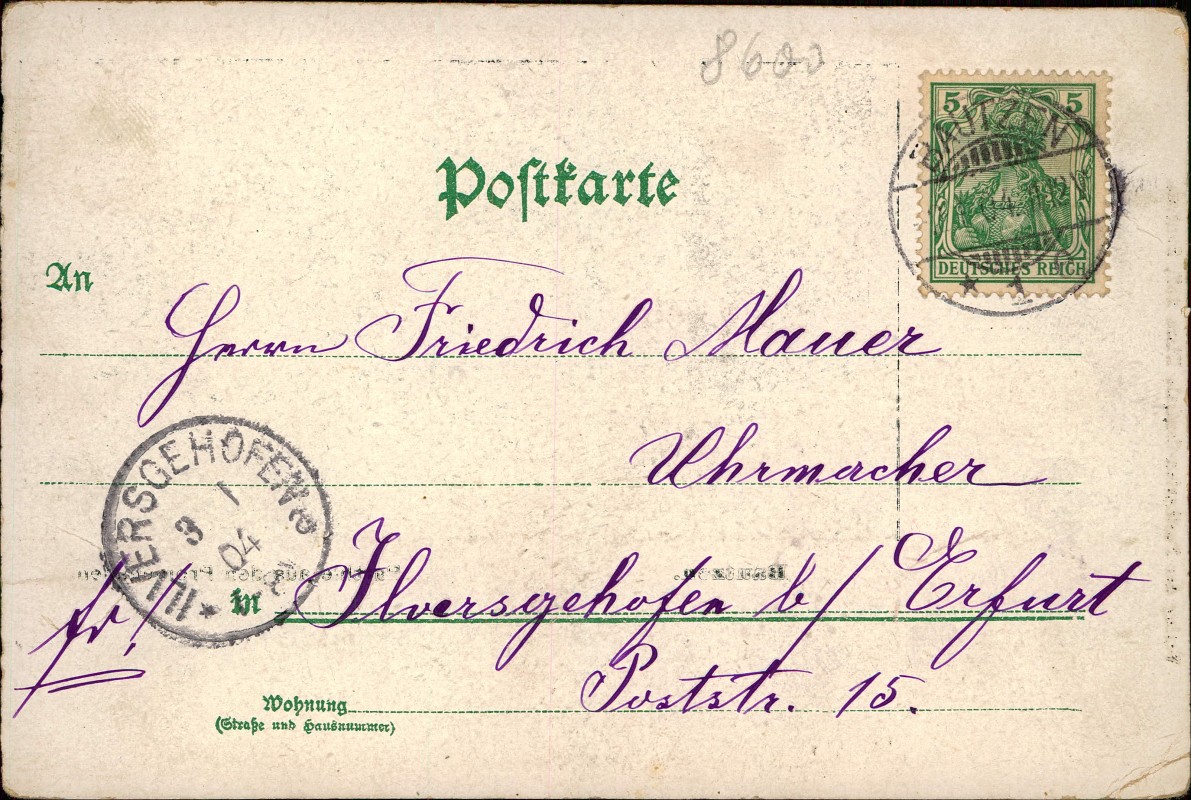 8600
Postkarte
5 5
DEUTSCHES REICH
BAUTZEN
* 1
An
Herrn Friedrich Mauer
Uhrmacher
ILVERSGEHOFEN
3 1
04
fr!
in Ilversgehofen b/ Erfurt
Poststr. 15.
Wohnung
(Straße und Hausnummer)